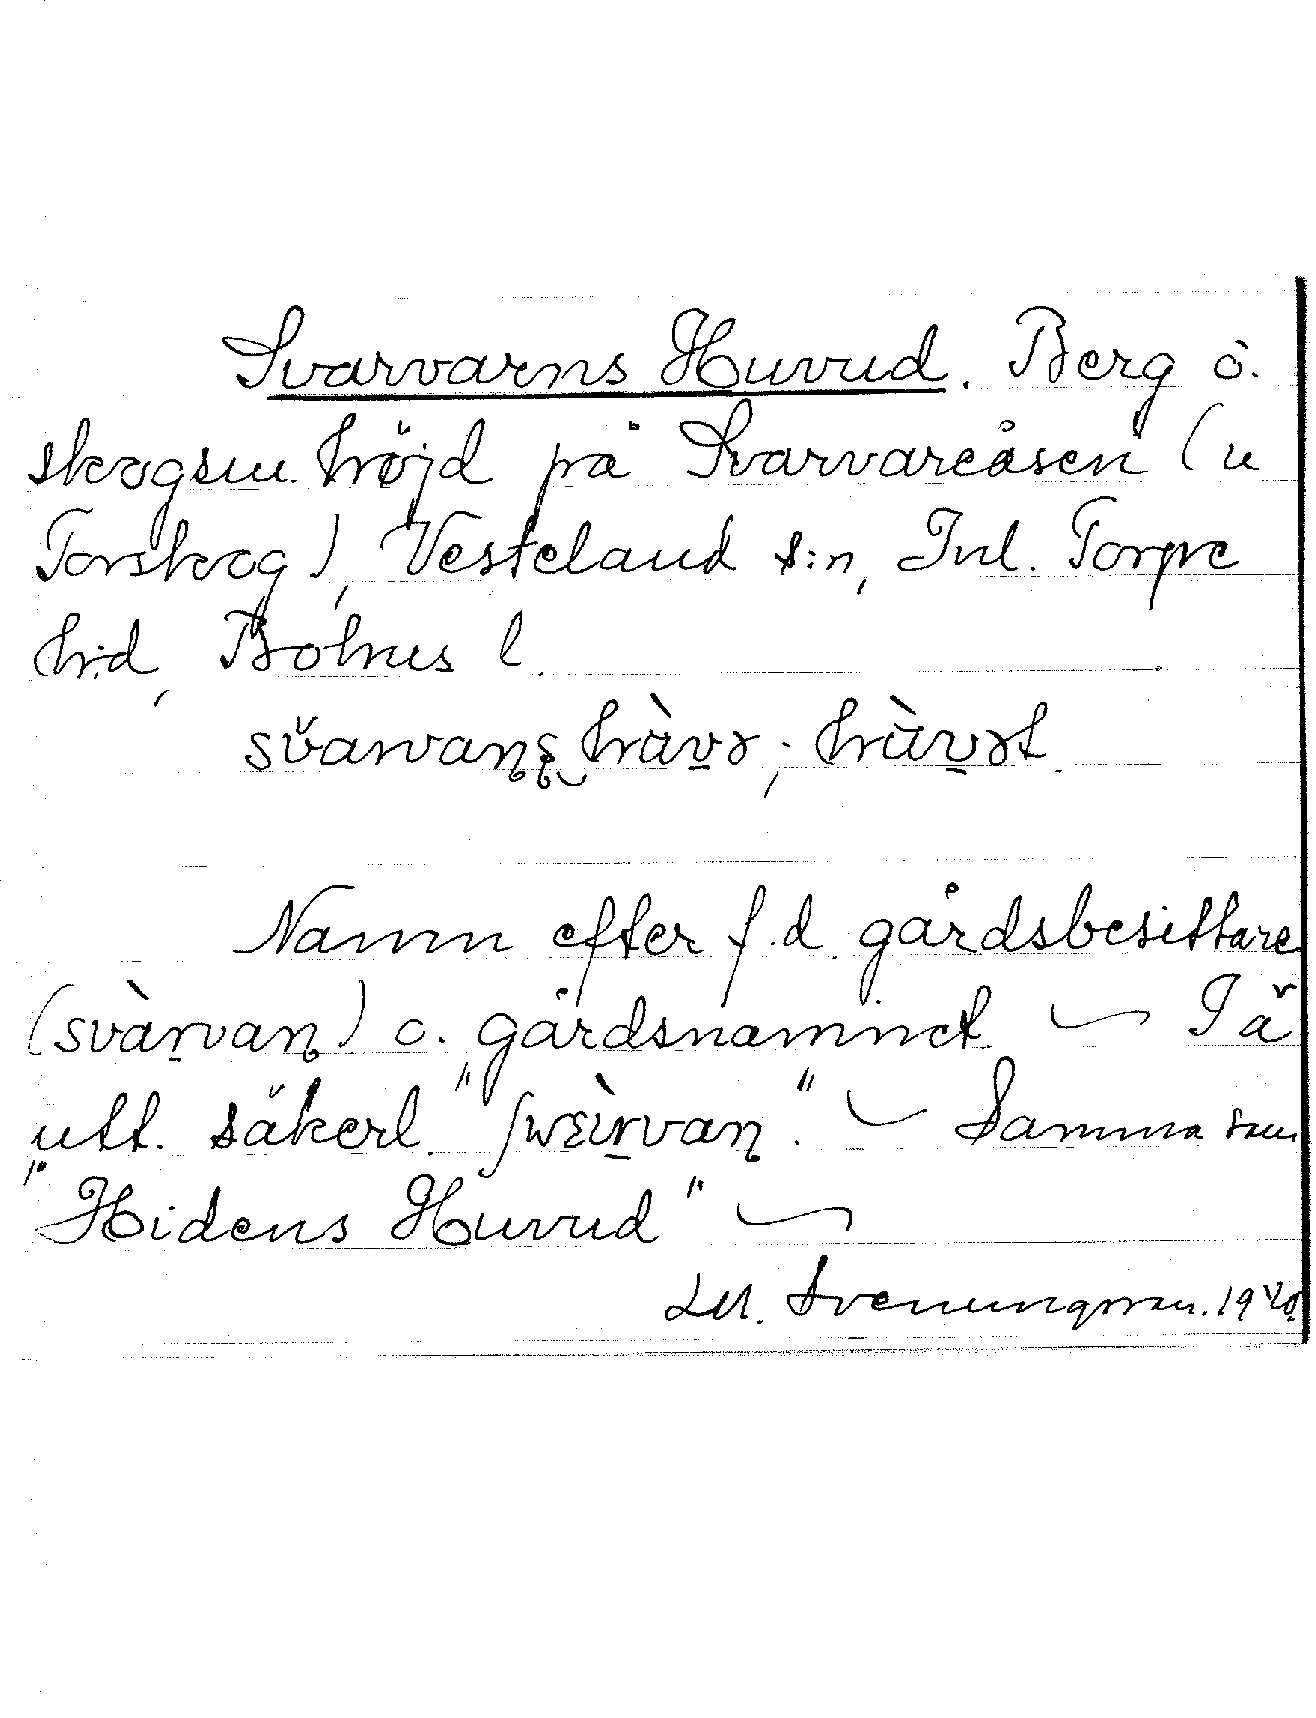 Svarvarns Huvud. Berg o.
skogsm. höjd på Svarvareåsen (u
Torskog), Vesteland s:n, Inl. Torpe
hd, Bohus l.
svarvaɳʂ hàvə; hàvət.
Namn efter f.d. gårdsbesittare
(svàrvaɳ) o. gårdsnamnet — I ä
utt. säkerl. "ʃwɛ̀rvaɳ". — Samma som
"Hidens Huvud" —
Svenungsson. 1940